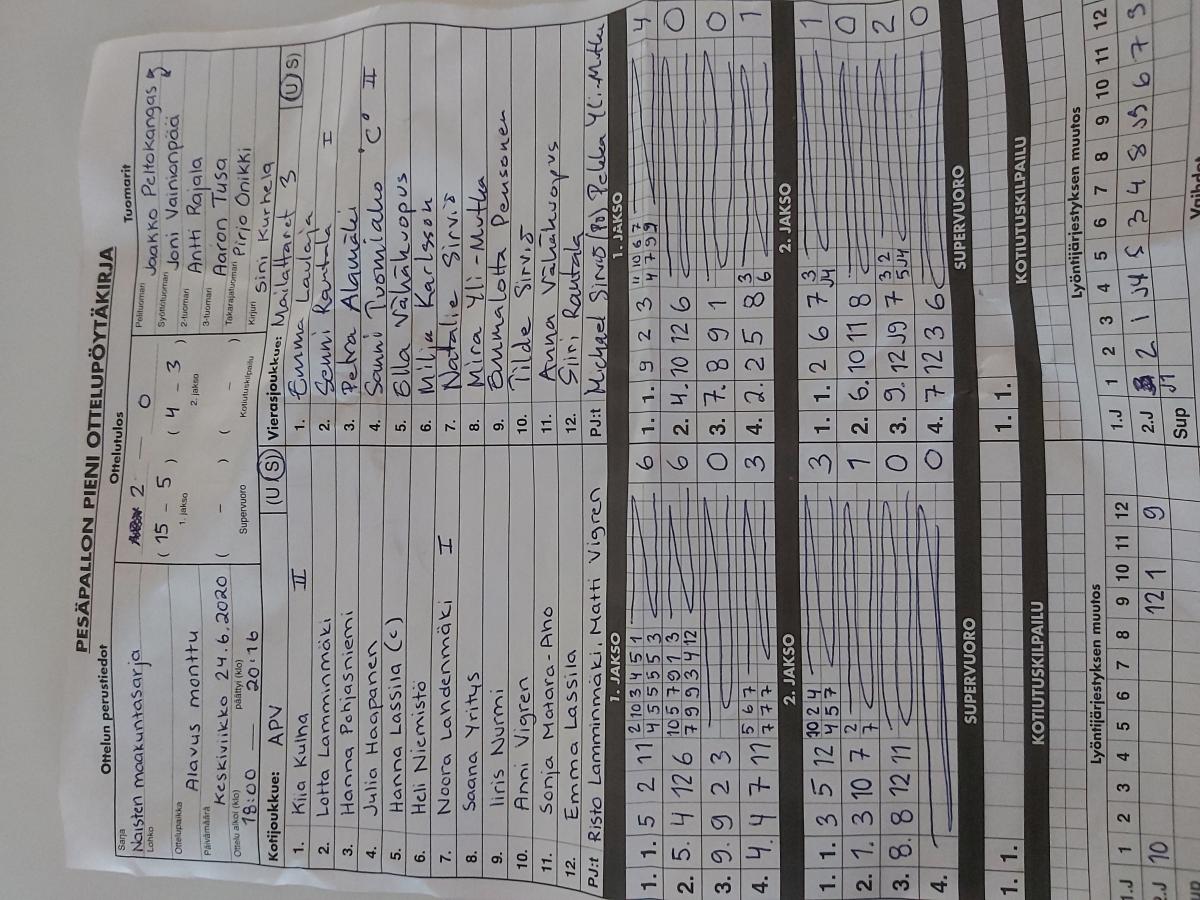 PESÄPALLON PIENI OTTELUPÖYTÄKIRJA
Ottelun perustiedot
Ottelutulos
Tuomarit
Sarja
Naisten maakuntasarja
Lohko
Ottelupaikka
Alavus monttu
Päivämäärä
Keskiviikko 24.6.2020
Ottelu alkoi (klo) päättyi (klo)
18:00 — 20:16
2 — 0
( 15 - 5 ) ( 4 - 3 )
1. jakso 2. jakso
( - ) ( - )
Supervuoro Kotiutuskilpailu
Pelituomari Jaakko Peltokangas
Syöttötuomari Joni Vainionpää
2-tuomari Antti Rajala
3-tuomari Aaron Tusa
Takarajatuomari Pirjo Onikki
Kirjuri Sini Kurhela
Kotijoukkue: APV (U S)
1. Kiia Kulha II
2. Lotta Lamminmäki
3. Hanna Pohjasniemi
4. Julia Haapanen
5. Hanna Lassila (c)
6. Heli Niemistö
7. Noora Lahdenmäki I
8. Saana Yritys
9. Iiris Nurmi
10. Anni Vigren
11. Sonja Matara-Aho
12. Emma Lassila
PJ:t Risto Lamminmäki, Matti Vigren
Vierasjoukkue: Mailattaret 3 (U S)
1. Emma Laulaja
2. Senni Rautala I
3. Petra Alamäki
4. Sanni Tuomiaho "C" II
5. Ella Vähäkuopus
6. Milja Karlsson
7. Natalie Sirviö
8. Mira Yli-Mutka
9. Emmalotta Pensonen
10. Tilde Sirviö
11. Anna Vähäkuopus
12. Siini Rautala
PJ:t Michael Sirviö (PJ) Pekka Yli-Mutka
1. JAKSO
1. 1. 5 2 11 2 10 3 4 5 1 6
4 5 5 5 5 3
2. 5. 4 12 6 10 5 7 9 1 3 6
7 9 9 3 4 12
3. 9. 9 2 3 0
4. 4. 4 7 11 5 6 7 3
7 7 7
2. JAKSO
1. 1. 3 5 12 10 2 4 3
4 5 7
2. 1. 3 10 7 2 1
7
3. 8. 8 12 11 0
4. 0
SUPERVUORO
1. 1.
KOTIUTUSKILPAILU
Lyöntijärjestyksen muutos
1 2 3 4 5 6 7 8 9 10 11 12
1.J
2.J 10 12 1 9
1. JAKSO
1. 1. 9 2 3 11 10 6 7 4
4 7 9 9
2. 4. 10 12 6 0
3. 7. 8 9 1 0
4. 2. 2 5 8 3 1
6
2. JAKSO
1. 1. 2 6 7 3 1
J4
2. 6. 10 11 8 0
3. 9. 12 J9 7 3 2 2
5 J4
4. 7 12 3 6 0
SUPERVUORO
1. 1.
KOTIUTUSKILPAILU
Lyöntijärjestyksen muutos
1 2 3 4 5 6 7 8 9 10 11 12
1.J
2.J 2 1 J4 5 3 4 8 J9 6 7 9
J1
Sup